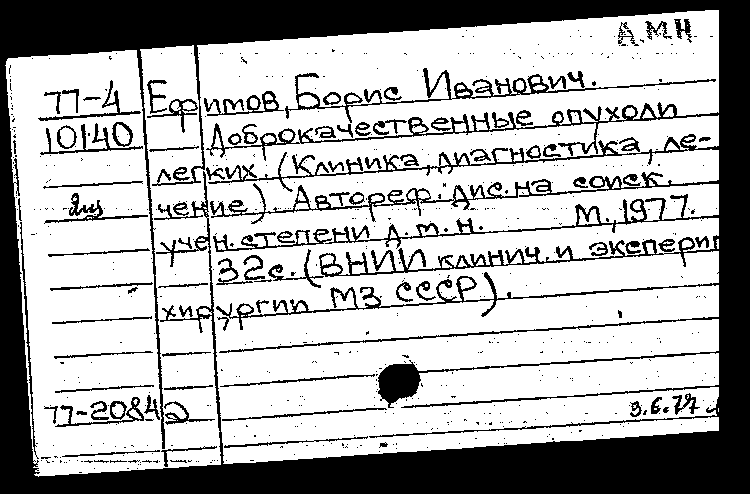 А.МН
77-4 Ефимов, Борис Иванович.
10140 Доброкачественные опухоли
легких. (Клиника, диагностика, ле-
чение). Автореф. дис. на соиск.
учен. степени д.м.н. М., 1977.
32с. (ВНИИ клинич. и эксперим
хирургии МЗ СССР).
77-20842
3.6.77